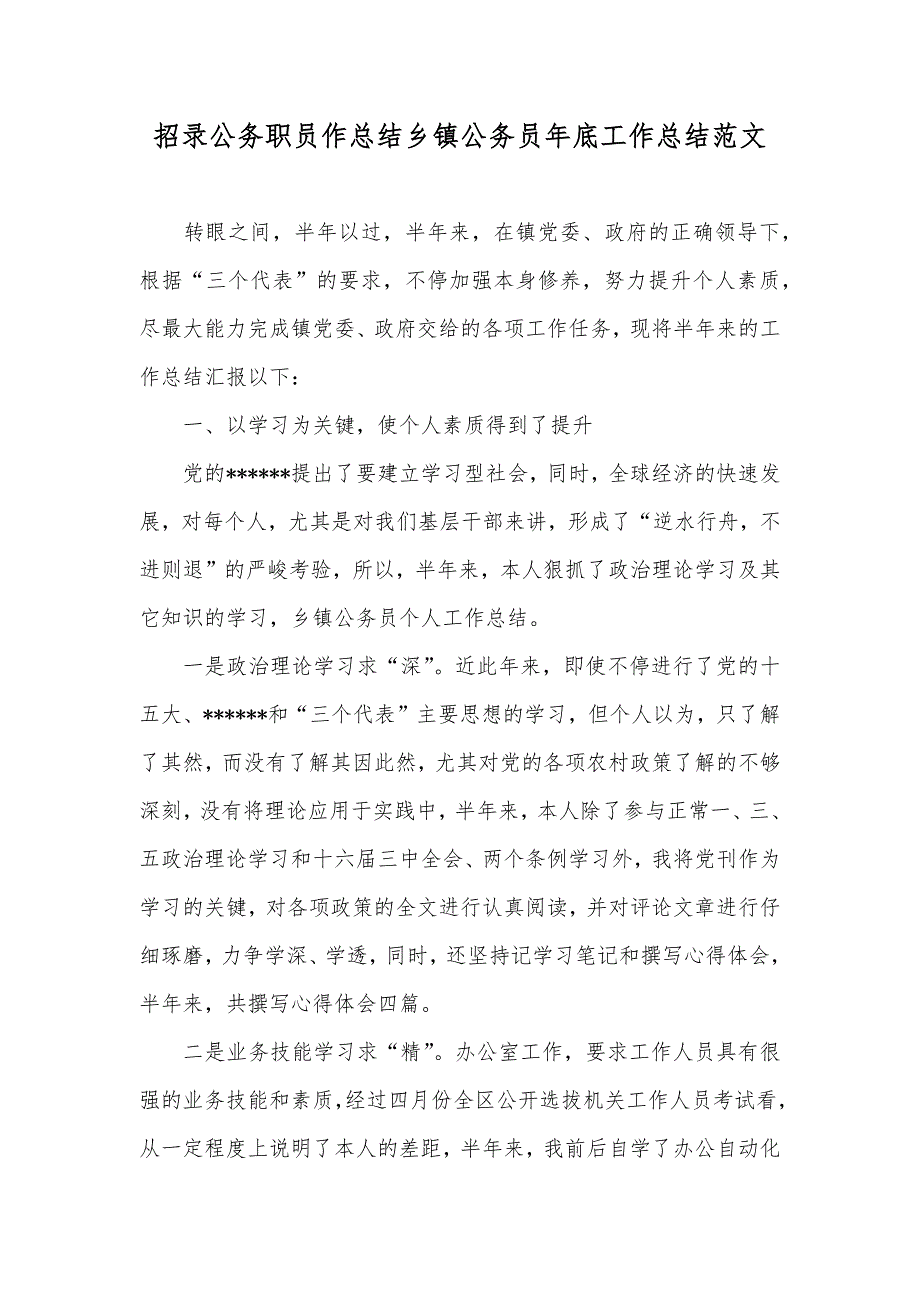 招录公务职员作总结乡镇公务员年底工作总结范文
转眼之间，半年以过，半年来，在镇党委、政府的正确领导下，
根据“三个代表”的要求，不停加强本身修养，努力提升个人素质，
尽最大能力完成镇党委、政府交给的各项工作任务，现将半年来的工
作总结汇报以下：
一、以学习为关键，使个人素质得到了提升
党的******提出了要建立学习型社会，同时，全球经济的快速发
展，对每个人，尤其是对我们基层干部来讲，形成了“逆水行舟，不
进则退”的严峻考验，所以，半年来，本人狠抓了政治理论学习及其
它知识的学习，乡镇公务员个人工作总结。
一是政治理论学习求“深”。近此年来，即使不停进行了党的十
五大、******和“三个代表”主要思想的学习，但个人以为，只了解
了其然，而没有了解其因此然，尤其对党的各项农村政策了解的不够
深刻，没有将理论应用于实践中，半年来，本人除了参与正常一、三、
五政治理论学习和十六届三中全会、两个条例学习外，我将党刊作为
学习的关键，对各项政策的全文进行认真阅读，并对评论文章进行仔
细琢磨，力争学深、学透，同时，还坚持记学习笔记和撰写心得体会，
半年来，共撰写心得体会四篇。
二是业务技能学习求“精”。办公室工作，要求工作人员具有很
强的业务技能和素质，经过四月份全区公开选拔机关工作人员考试看，
从一定程度上说明了本人的差距，半年来，我前后自学了办公自动化